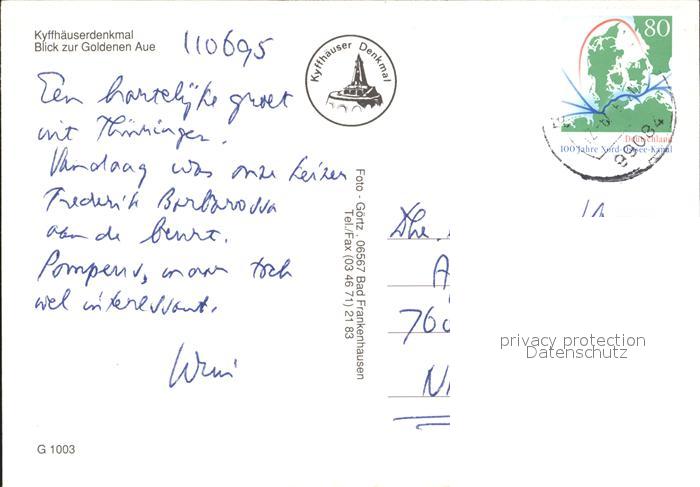 Kyffhäuserdenkmal
Blick zur Goldenen Aue
110695
Kyffhäuser Denkmal
80
Deutschland
100 Jahre Nord-Ostsee-Kanal
99084
Een hartelijke groet
uit Thüringen.
Vandaag was onze keizer
Frederik Barbarossa
aan de beurt.
Pompeus, maar toch
wel interessant.
Wim
Foto - Görtz , 06567 Bad Frankenhausen
Tel./Fax (03 46 71) 21 83
Dhr.
A
760
N
privacy protection
Datenschutz
G 1003